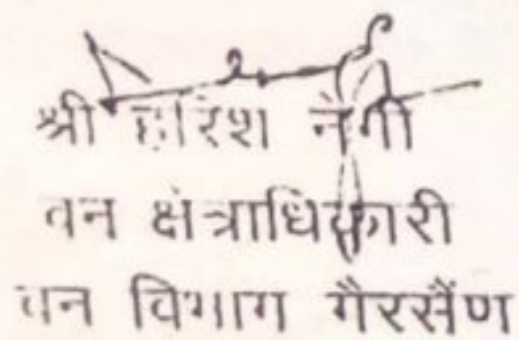 श्री हरिश नेगी
वन क्षेत्राधिकारी
वन विभाग गैरसैंण